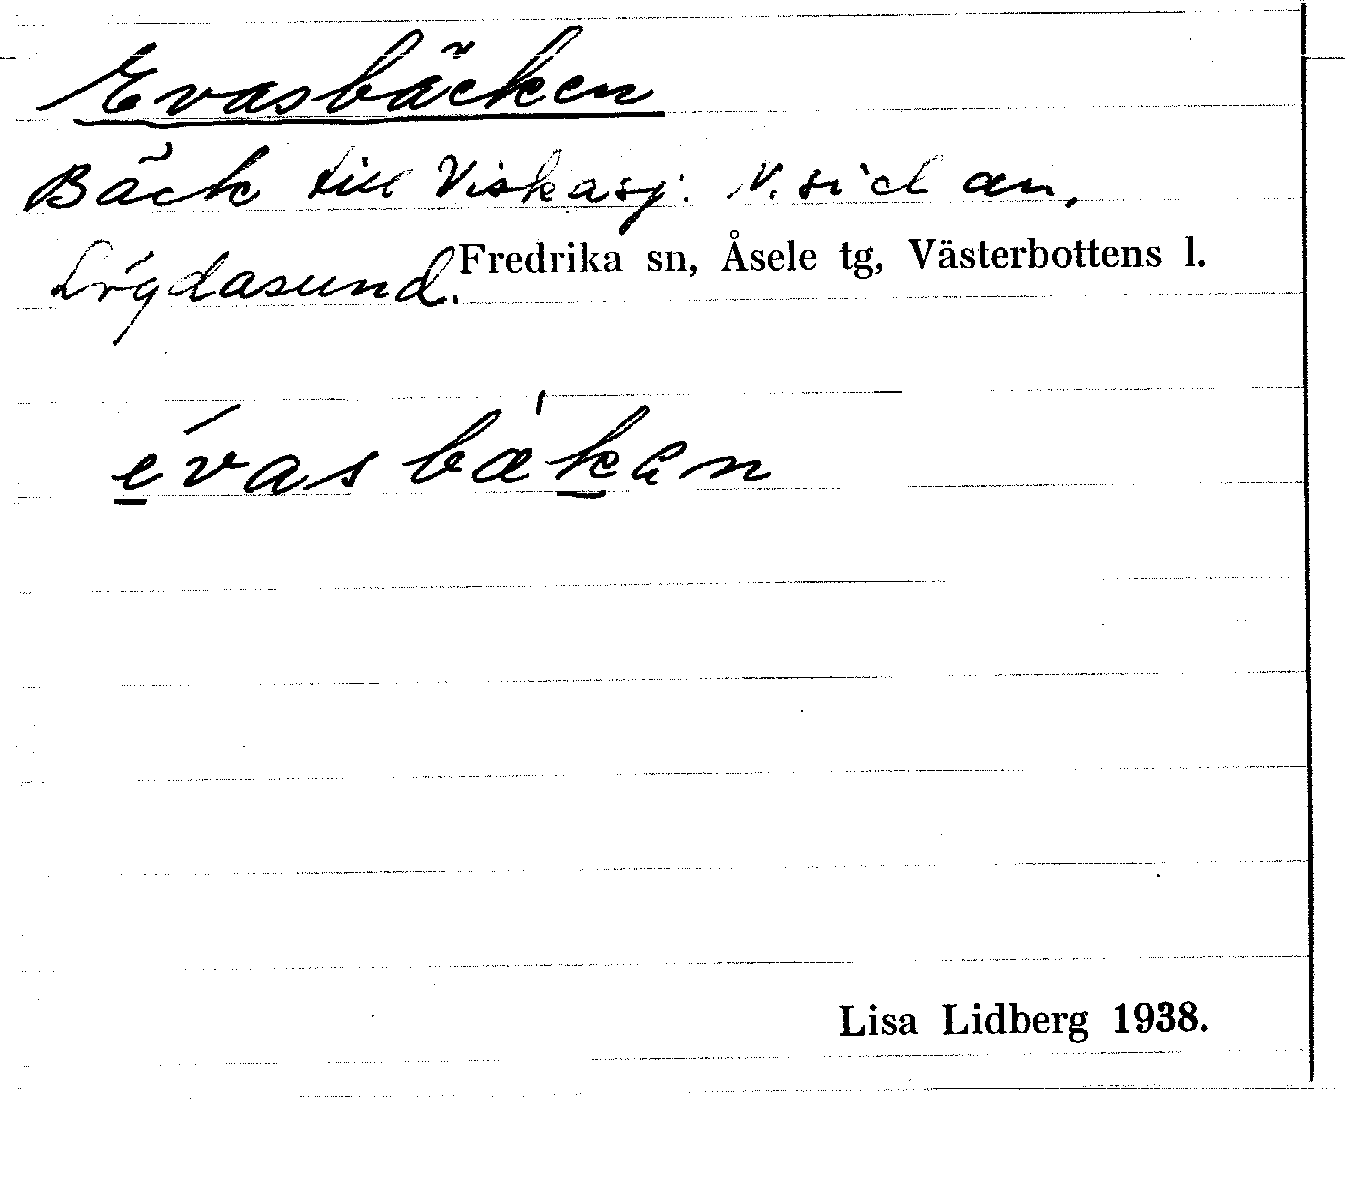 Evasbäcken
Bäck till Viskasj: N. sidan,
Lögdasund. Fredrika sn, Åsele tg, Västerbottens l.
évasbæ'kən
Lisa Lidberg 1938.